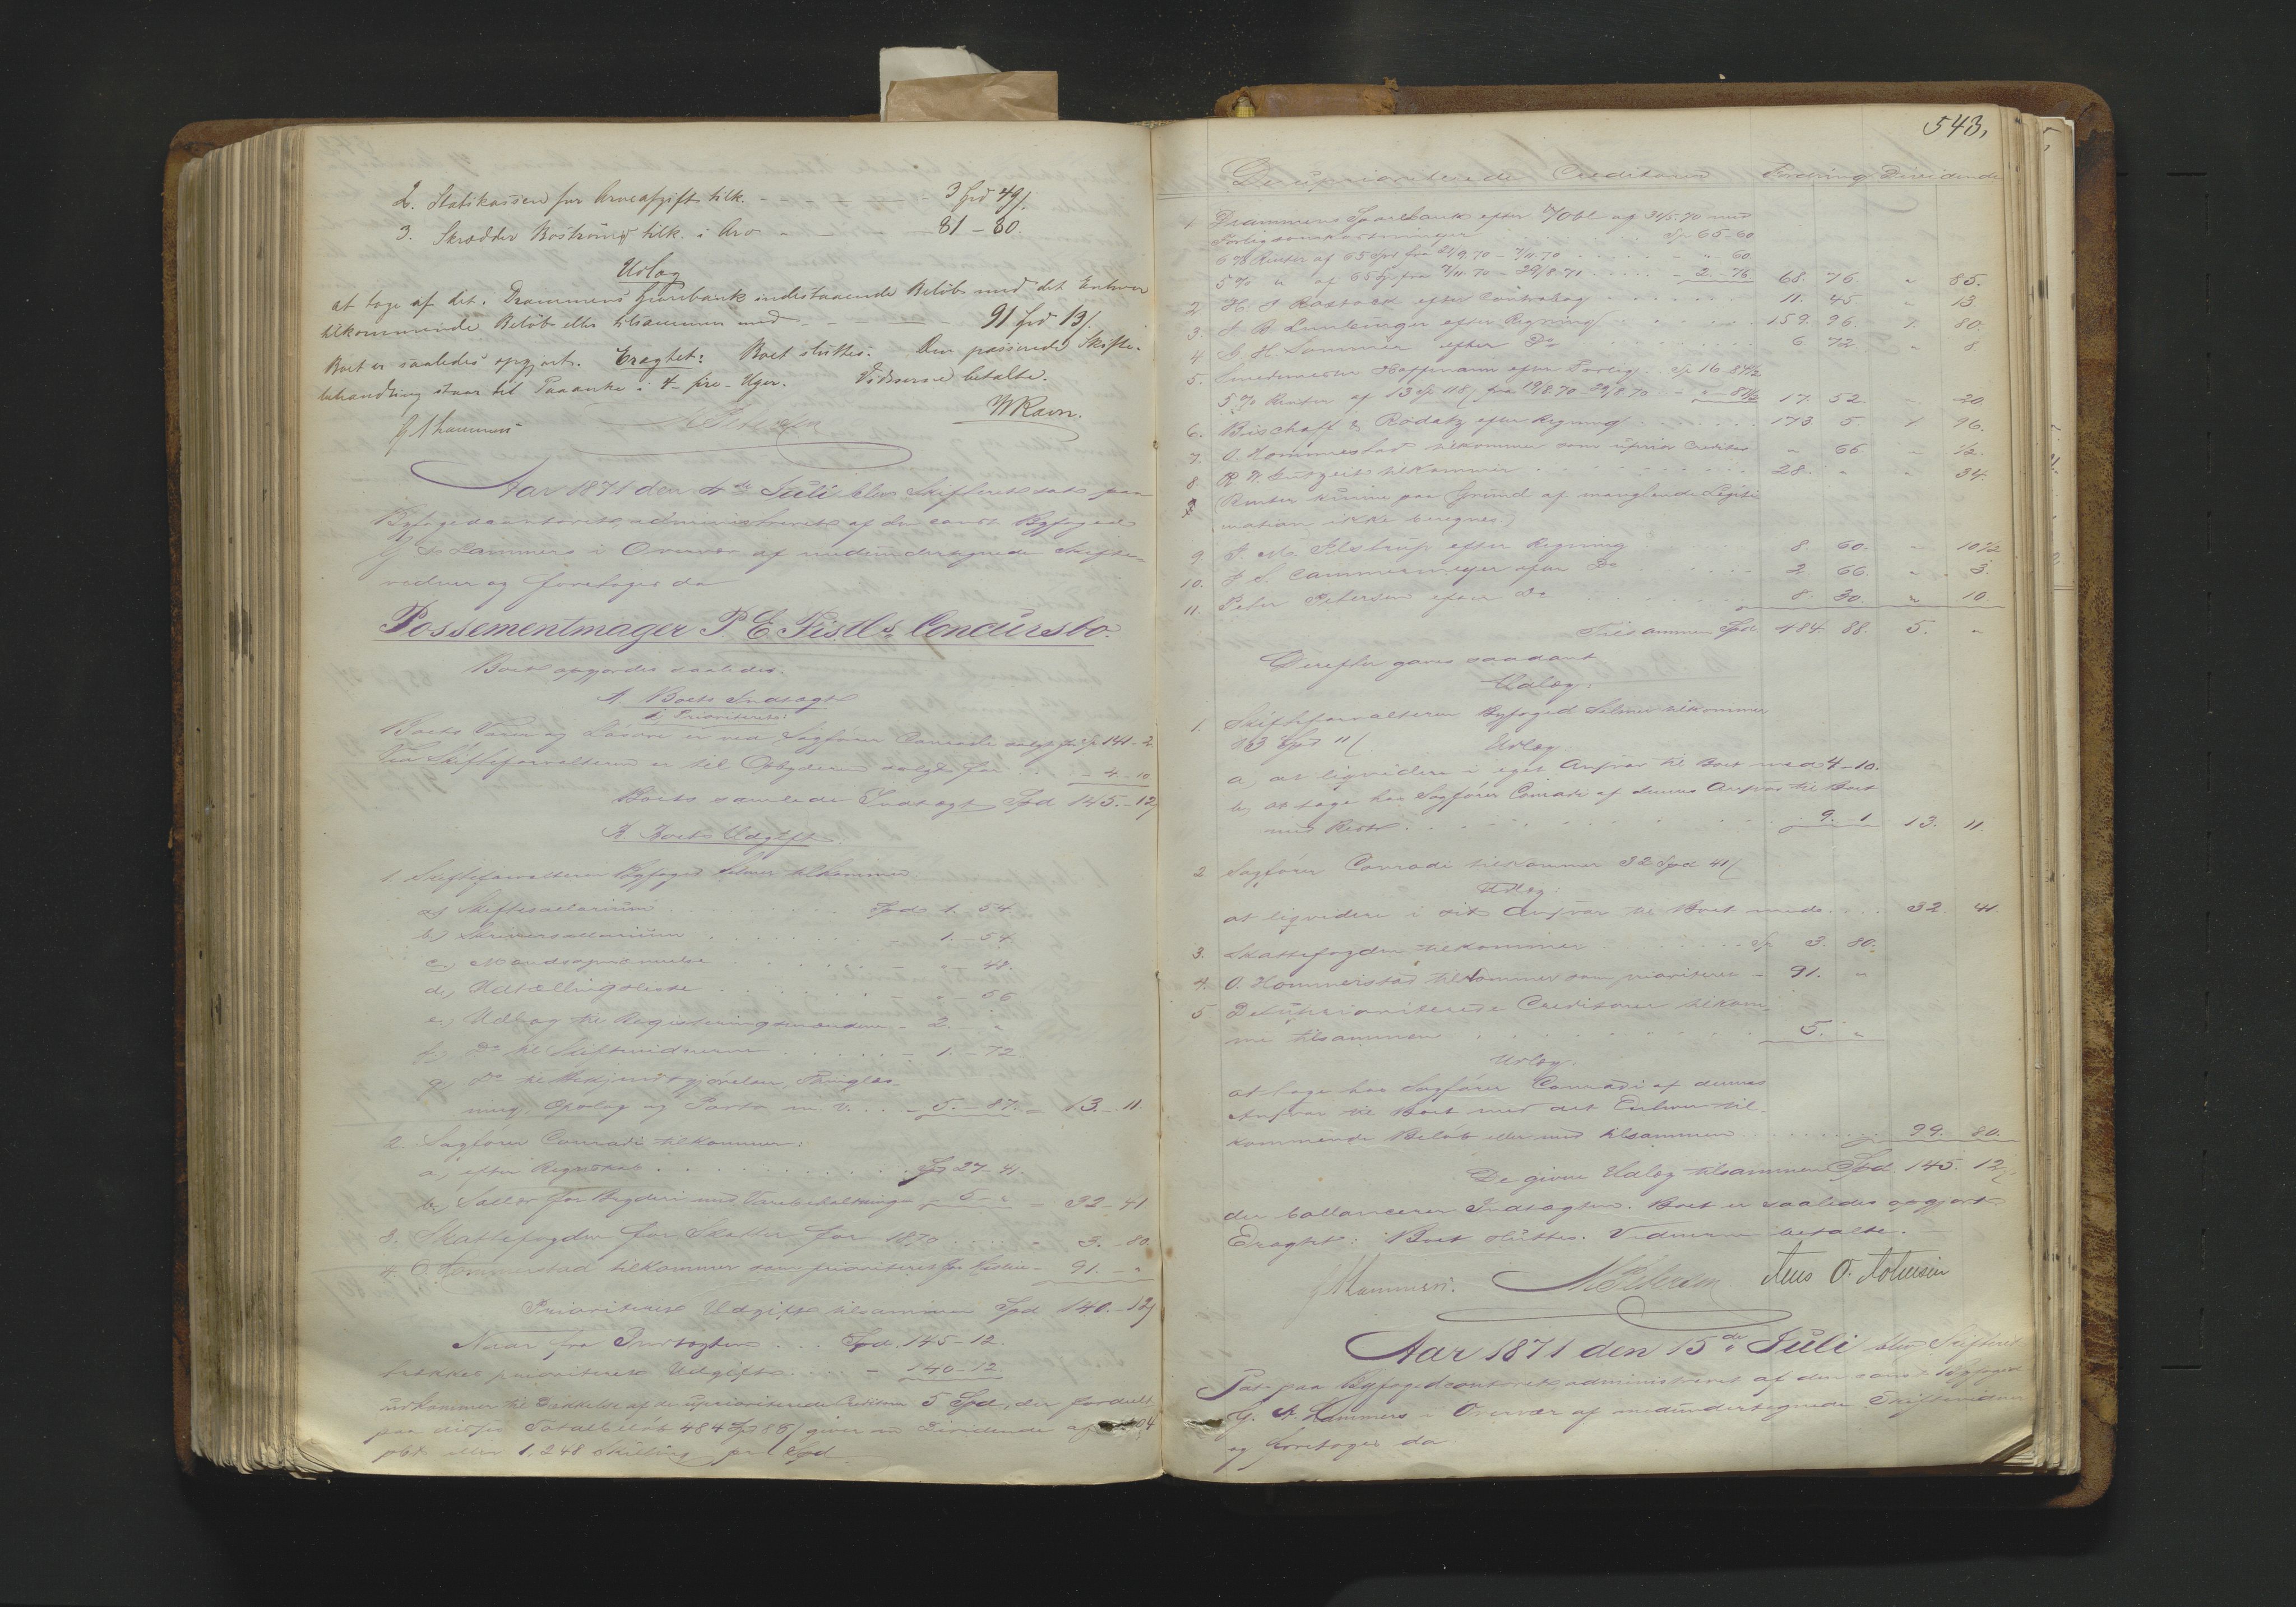 2. Statskassen for Arveafgift tilk. - - - - - - 3 Spd 49/.
3. Skrædder Boströms tilk. i Arv - - - - 81 - 80.
Udlæg
at tage af det i Drammens Sparebank indestaaende Beløb med det Enhver
tilkommende Beløb eller tilsammen med - - - - 91 Spd 13/.
Boet er saaledes opgjort. Eragtet: Boet sluttes. Den passerede Skifte-
behandling staar til Paaanke i 4 - fire - Uger. Vidnerne betalte.
G A Lammers WRavn.
Aar 1871 den 4de Juli blev Skifteret sat paa
Byfogedcontoret administreret af den const. Byfoged
G A Lammers i Overvær af medundertegnede Skifte-
vidner og foretoges da
Possementmager P E Fistls Concursbo.
Boet opgjordes saaledes.
A. Boets Indtægt
1) Prioriteret:
Boets Varer og Løsøre er ved Sagfører Conradi solgt for Sp 141 - 2
Ved Skifteforvalteren er til Opbyderen solgt for . . - 4 - 10
Boets samlede Indtægt Spd 145. - 12/
B. Boets Udgift.
1. Skifteforvalteren Byfoged Selmer tilkommer
a) Skiftesalarium . . . . Spd 1. 54.
b) Skriversallarium . . . . 1. - 54
c.) Mandsopnævnelse . . . . - 48.
d.) Udtællings . . . . - 56
e.) Udlæg til Registreringsmændene - 2. "
f.) Do til Skiftevidnerne . . . . - 1. - 72
g) Do til Bekjendtgjørelser, Thinglæs-
ning, Opslag og Porto m. v. . . - 5. - 87. - 13. - 11.
2. Sagfører Conradi tilkommer:
a) efter Regnskab . . . . Sp 27 - 41.
b) Sallær for Bryderi med Varebeholdningen - 5 - " - 32 - 41
3. Skattefogden for Skatter for 1870 . . . . - 3. - 80.
4. O. Hommerstad tilkommer som prioriteret for Leie - 91. - "
Prioriteret Udgift tilsammen Spd 140. - 12/
Naar fra Indtægten . . . Spd. 145 - 12.
trækkes prioriteret Udgift . . . - 140 - 12
udkommer til Dækkelse af de uprioriterede Creditorer 5 Spd, der fordelt
paa disses Totalbeløb 484 Sp 88/ giver en Dividende af 04
pCt eller 1,248 Skilling pr Spd
543,
De uprioriterede Creditorer Fordring Dividende
1 Drammens Sparebank efter Obl af 31/5.70 med
Forligsomkostninger . . . . Sp. 65 - 60
6 % Renter af 65 Spd fra 21/9.70 - 7/11.70 . . . . - " 60
5 % " af 65 Sp fra 7/11.70 - 29/8.71 . . . . - 2. - 76 68. 76. " 85.
2 H. J Rostock efter Contrabog . . . . 11. 45 " 13
3. efter Regning . . . . 159. 96. 1. 80.
4 G. H. Sommer efter Do 6 72. " 8
5. Smedmester Hoffmann efter Forlig. Sp 16 84½
5 % Renter af 13 Sp 118/ fra 19/8.70 29/8.70 - " - 87½ 17. 52 - 20
6. Bischoff & Rodatz efter Regning . . . . 173 5. 1 96.
7. O. Hommerstad tilkommer som uprior. Creditor " 66 - ½.
8. tilkommer . . . . 28. " " 34.
(Renter kunne paa Grund af manglende Legiti
mation ikke beregnes.)
9. J. M. Ilstrup efter Regning 8. 60. " 10½
10. J. S. Cammermeyer efter Do . . . . 2 66 " 3.
11. Peter Petersen efter Do . . . . 8. 30. " 10.
Tilsammen Spd 484 88. 5. "
Derefter gives saadant
Udlæg:
1. Skifteforvalteren Byfoged Selmer tilkommer
13 Spd 11/. Udlæg
a, at liqvidere i eget Ansvar til Boet med 4 - 10.
b, at tage hos Sagfører Conradi af dennes Ansvar til Boet
med Rest . . . . 9. 1 13. 11.
2 Sagfører Conradi tilkommer 32 Spd 41/
Udlæg:
at liqvidere i sit Ansvar til Boet med . . . 32. 41
3. Skattefogden tilkommer . . . . Sp 3. 80.
4. O. Hommerstad tilkommer som prioriteret - 91. "
5 De uprioriterede Creditorer tilkom-
me tilsammen . . . . 5. "
Udlæg.
at tage hos Sagfører Conradi af dennes
Ansvar til Boet med det Enhver til-
kommende Beløb eller med tilsammen . . . . 99. 80.
De givne Udlæg tilsammen Spd 145. 12/
der ballancerer Indtægten. Boet er saaledes opgjort.
Eragtet: Boet sluttes. Vidnerne betalte.
G A Lammers.
Aar 1871 den 15de Juli blev Skifteret
sat paa Byfogedcontoret administreret af den const Byfoged
G. A. Lammers i Overvær af medundertegnede Skiftevidner
og foretoges da